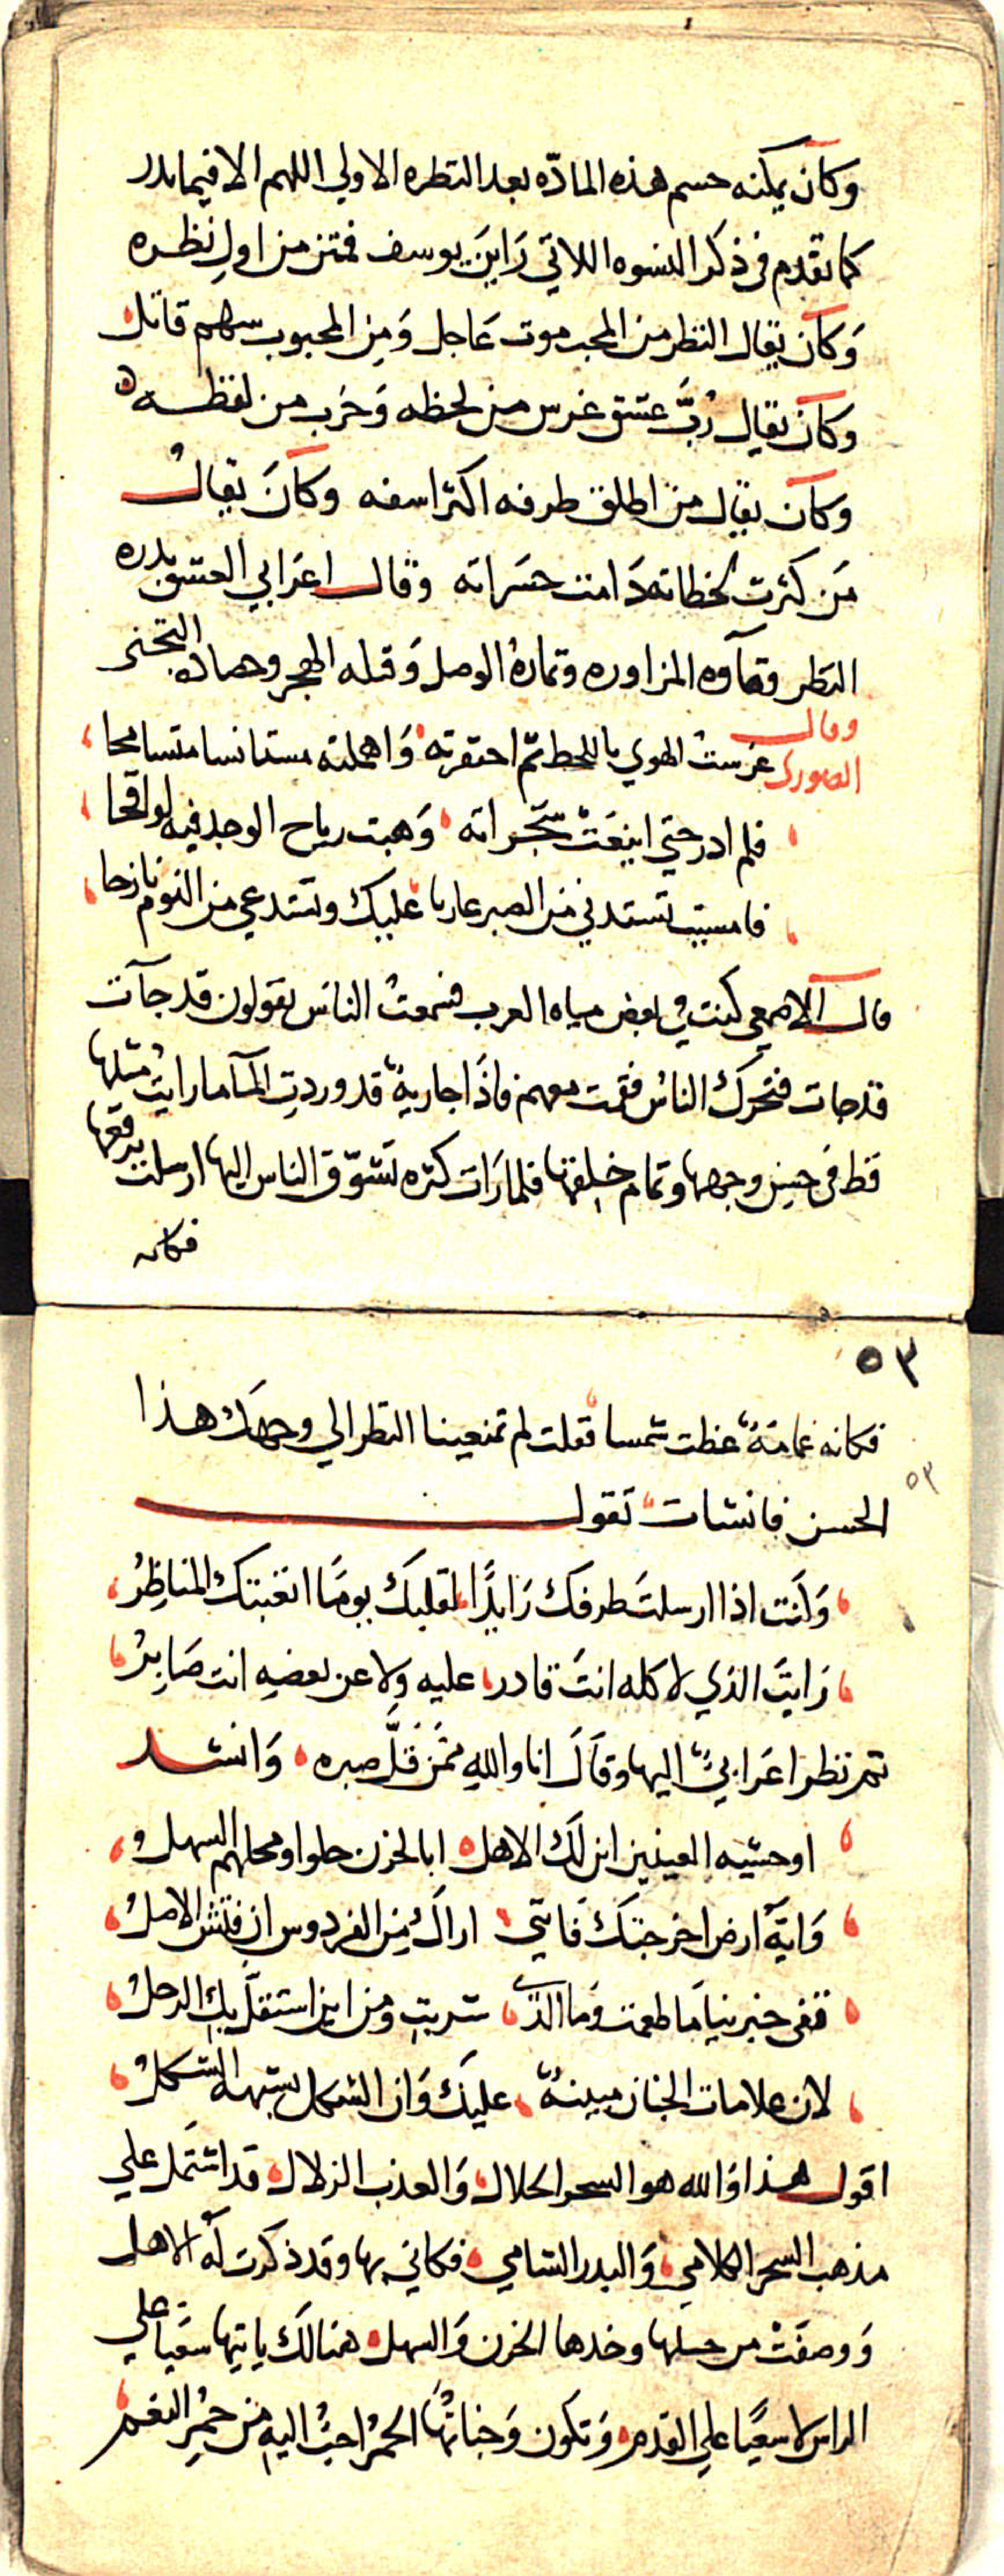 وكان يمكنه حسم هذه المادّه بعد النظره الاولي اللهم الا فيما ندر
كما تقدم في ذكر النسوه اللاتي رَاينَ يوسف فمتن من اول نظره
وَكان يقال النظر من المحب موت عَاجل وَمِن المحبوب سهم قاتل
وكان يقال رُبَّ عشق غرس من لحظه وَحَرب من لفظه
وكان يقال من اطلق طرفه اكثر اسفه وكانَ يقالُ
مَن كثرت لحظاته دَامت حسَراته وقال اعرَابي العشق بذره
النظر وماوه المزاوره ونماره الوصل وَقتله الهجر وحصاده التجني
وقال
الصوري غرستُ الهوي باللحظ ثم احتقرته وَاهملته مستانسا متسامحا
فلم ادر حتي اينعَتْ شجراته وَهبت رياح الوجد فيه لواقحا
فامسيت تستدني من الصبر عازبا عليك وتستدعي من النوم نازحا
قال الاصمعي كنت في بعض مياه العرب فسمعتُ الناسَ يقولون قد جآت
قد جات فتحرك الناسُ فقمت معهم فاذَا جاريةٌ قد وردتِ المآ ما رايتُ مثلها
قط في حسن وجهها وتمام خلقتها فلما رَات كثره تشوّق الناس اليها ارسلت برقعها
فكانه
٥٣
فكانه غمامَةٌ غطت شمسا فقلت لم تمنعينا النظر الي وجهك هذا
٥٣
الحسن فانشات تقول
وَانت اذا ارسلتَ طرفك رَايدًا لقلبك يومًا اتعبتك المناظِرُ
رَايتَ الذي لا كله انتَ قادر عليه ولا عن بعضهِ انت صَابِرُ
ثم نظر اعَرابيٌ اليها وقَالَ انا واللهِ ممَّن قَلَّ صبره وَانشد
اوحشيه العينين اين لَك الاهل ابالحزن حلوا او محلهم السهل
وَايّة ارض اخرجتك فَانّني اراكِ مِن الفردوس ان فتش الاصلُ
قفي خبرينا مَا طعمت وَما الذي شربتِ ومن اين استقل بكِ الرحلُ
لان علامات الجنان مبينةٌ عليكَ وَان الشكل يشبهه الشكلُ
اقول هذا وَالله هو السحر الحلال وَالعذب الزلال قد اشتمل علي
مذهب السحر الكلامي وَالبدر الشامي فكاني بها وقد ذكرت لَه الاهل
وَوصفَتْ من حسنها وخدها الحزن وَالسهل هنالكَ ياتيها سَعيا علي
الراس لا سعيًا علي القدم وَتكون وَجناتُها الحمرُ احبُّ اليهِ من حمرِ النعم